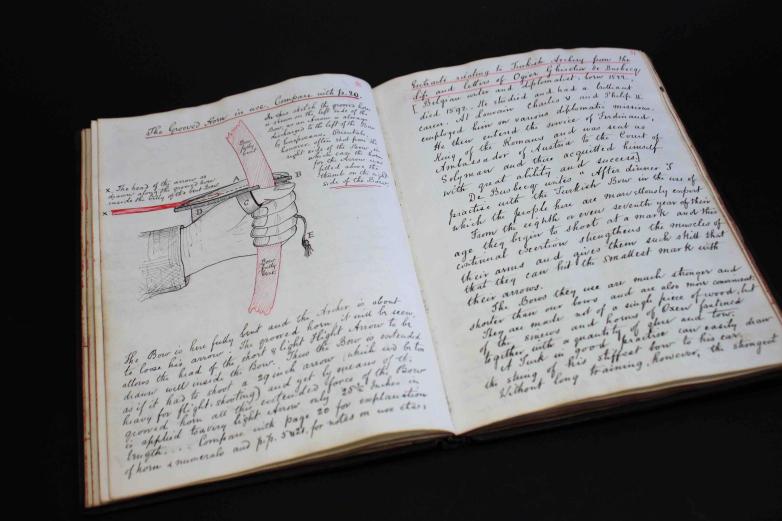 The Grooved Horn in use. Compare with p. 20.
In this sketch the grooved horn
is shewn on the left side of the
Bow, as an Arrow is always
discharged to the left of the Bow
by Europeans. Orientals,
however, often shot from the
right side of the Bow
in which case the horn
for the Arrow was
fitted above the
thumb on the right
side of the Bow
Bow
fully
bent
x The head of the arrow as
drawn along the grooved horn
inside the belly of the bent Bow
x
A
B
C
D
E
Bow
fully
bent
The Bow is here fully bent and the Archer is about
to loose his arrow. The grooved horn, it will be seen,
allows the head of the short & light Flight Arrow to be
drawn well inside the Bow. Thus the Bow is extended
as if it had to shoot a 29 inch arrow (which would be too
heavy for flight shooting) and yet by means of the
grooved horn all this extended force of the Bow
is applied to a very light Arrow only 25½ Inches in
length.... Compare with page 20 for explanation
of horn & numerals and p.p. 5 & 21. for notes on use
Extracts relating to Turkish Archery from the
life and letters of Ogier Ghiselin de Busbecq
[Belgian writer and Diplomatist, born 1522.
died 1592. He studied and had a brilliant
career. At Louvain Charles V and Philip II
employed him on various diplomatic missions.
He then entered the service of Ferdinand,
King of the Romans and was sent as
Ambassador of Austria to the Court of
Solyman and there acquitted himself
with great ability and success]
De Busbecq writes "After dinner I
practise with the Turkish Bow in the use of
which the people here are marvellously expert
From the eighth or even seventh year of their
age they begin to shoot at a mark and this
continual exertion strengthens the muscles of
their arms and gives them such skill that
that they can hit the smallest mark with
their arrows.
The Bows they use are much stronger and
shorter than our bows and are also more convenient.
They are made not of a single piece of wood, but
of the sinews and horns of Oxen fastened
together with a quantity of glue and tow.
A Turk in good practice can easily draw
the string of his stiffest bow to his ear.
Without long training, however, the strongest